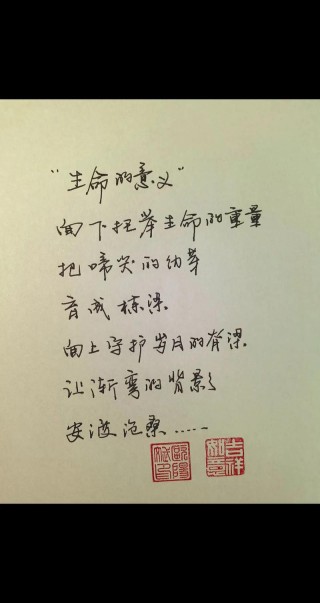 “生命的意义”
向下托举生命的重量
把啼哭的幼芽
育成栋梁
向上守护岁月的脊梁
让渐弯的背影
安渡沧桑……
吉祥如意